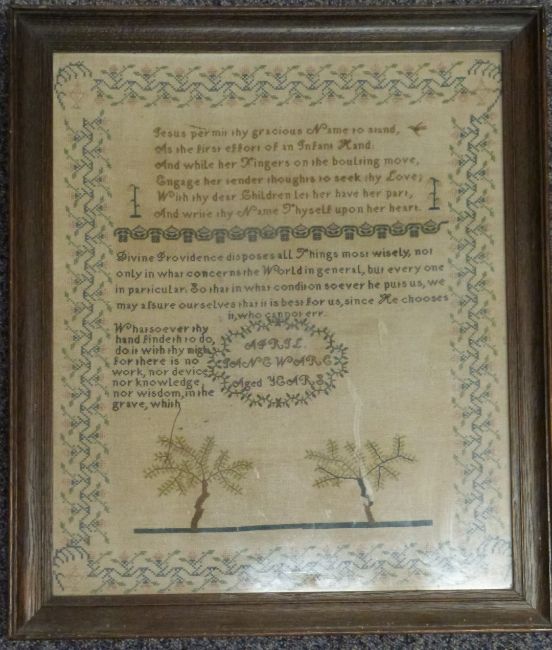 Jesus permit thy gracious Name to stand,
As the first effort of an Infant Hand:
And while her Fingers on the boulting move,
Engage her tender thoughts to seek thy Love;
With thy dear Children let her have her part,
And write thy Name Thyself upon her heart.
Divine Providence disposes all Things most wisely, not
only in what concerns the World in general, but every one
in particular. So that in what condition soever he puts us, we
may assure ourselves that it is best for us, since He chooses
it, who cannot err.
Whatsoever thy
hand findeth to do,
do it with thy migh
for there is no
work, nor device
nor knowledge
nor wisdom, in the
grave, whith
APRIL
JANE WARE
Aged YEARS